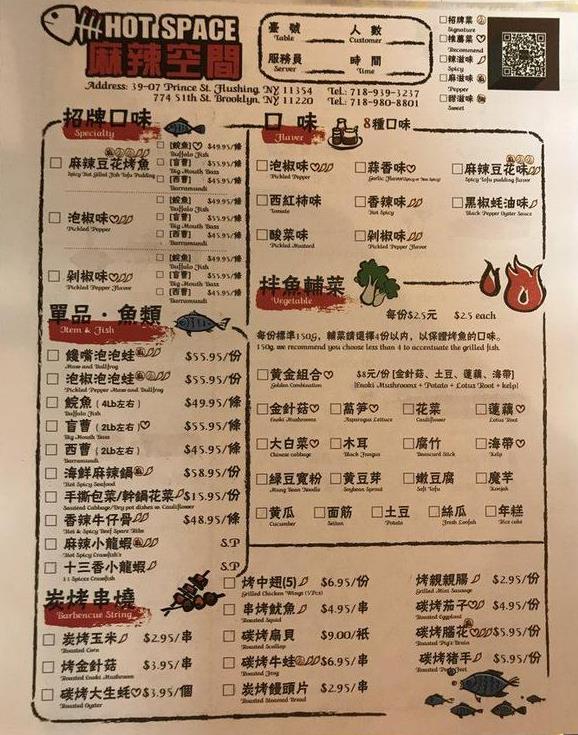 HOT SPACE
麻辣空間
Address: 39-07 Prince St. Flushing, NY 11354 Tel: 718-939-3237
774 51th St. Brooklyn, NY 11220 Tel: 718-980-8801
臺號 Table 人數 Customer
服務員 Server 時間 Time
招牌菜 Signature
推薦菜 Recommend
辣滋味 Spicy
麻滋味 Pepper
甜滋味 Sweet
招牌口味
Specialty
麻辣豆花烤魚
[鯇魚] $49.95/條
Buffalo Fish
[盲曹] $55.95/條
Big Mouth Bass
[西曹] $45.95/條
Barramundi
泡椒味
Pickled Pepper
[鯇魚] $49.95/條
Buffalo Fish
[盲曹] $55.95/條
Big Mouth Bass
[西曹] $45.95/條
Barramundi
剁椒味
Pickled Pepper Flavor
[鯇魚] $49.95/條
Buffalo Fish
[盲曹] $55.95/條
Big Mouth Bass
[西曹] $45.95/條
Barramundi
口味 8種口味
Flavor
泡椒味 蒜香味 麻辣豆花味
Pickled Pepper Spicy Tofu pudding flavor
西紅柿味 香辣味 黑椒蚝油味
Tomato Hot Spicy Black Pepper Oyster Sauce
酸菜味 剁椒味
Pickled Mustard Pickled Pepper Flavor
拌魚輔菜
Vegetable
每份$2.5元 $2.5 each
每份標準150g，輔菜請選擇4份以內，以保證烤魚的口味。
150g, we recommend you choose less than 4 to accentuate the grilled fish.
黃金組合 $8元/份 [金針菇、土豆、蓮藕、海帶]
Golden Combination [Enoki Mushrooms + Potato + Lotus Root + kelp]
金針菇 萵筍 花菜 蓮藕
Enoki Mushrooms Asparagus Lettuce Cauliflower Lotus Root
大白菜 木耳 腐竹 海帶
Chinese cabbage Black Fungus Beancurd Stick Kelp
綠豆寬粉 黃豆芽 嫩豆腐 魔芋
Mung Bean Noodle Soybean Sprout Soft Tofu Konjak
黃瓜 面筋 土豆 絲瓜 年糕
Cucumber Seitan Potato Fresh Loofah Rice cake
單品·魚類
Item & Fish
饞嘴泡泡蛙 $55.95/份
泡椒泡泡蛙 $55.95/份
鯇魚 (4Lb左右) $49.95/條
Buffalo Fish
盲曹 (2Lb左右) $55.95/條
Big Mouth Bass
西曹 (2Lb左右) $45.95/條
Barramundi
海鮮麻辣鍋 $58.95/份
Hot Spicy Seafood
手撕包菜/幹鍋花菜 $15.95/份
香辣牛仔骨 $48.95/條
Hot & Spicy Beef Spare Ribs
麻辣小龍蝦 S.P
Hot Spicy Crawfish's
十三香小龍蝦 S.P
13 Spices Crawfish
炭烤串燒
Barbecue String
炭烤玉米 $2.95/串
Roasted Corn
烤金針菇 $3.95/串
Roasted Enoki Mushroom
碳烤大生蚝 $3.95/個
Roasted Oyster
烤中翅(5) $6.95/份
Grilled Chicken Wings (5Pcs)
串烤魷魚 $4.95/串
Roasted Squid
碳烤扇貝 $9.00/衹
Roasted Scallop
碳烤牛蛙 $6.95/份
Roasted Frog
炭烤饅頭片 $2.95/串
Roasted Steamed Bread
烤親親腸 $2.95/份
Grilled Mini Sausage
碳烤茄子 $4.95/份
Roasted Eggplant
碳烤腦花 $5.95/份
Roasted Pig's Brain
碳烤豬手 $5.95/份